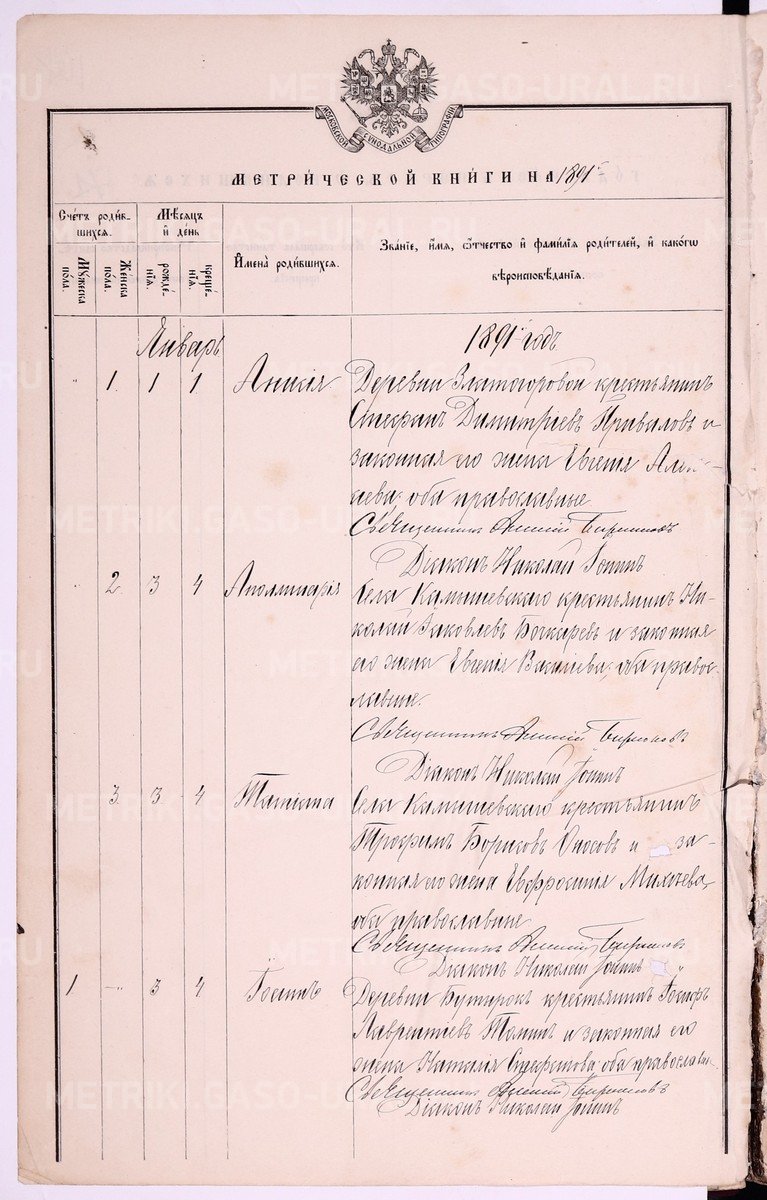 МОСКОВСКОЙ СѴНОДАЛЬНОЙ ТИПОГРАФІИ
МЕТРИ́ЧЕСКОЙ КНИ́ГИ НА 1891 г.
Сче́тъ роди́в-
шихся.
Му́жеска
по́ла.
Же́нска
по́ла.
Мѣ́сяцъ
и҆ де́нь
рожде́-
нїя.
креще́-
нїя.
И҆мена̀ роди́вшихся.
Зва́нїе, и҆́мя, ѻ҆́тчество и҆ фами́лїя роди́телей, и҆ како́гѡ
вѣроисповѣ́данїя.
Январь
1891 годъ
1. 1 1. Анисія Деревни Златогоровой крестьянинъ
Стефанъ Димитріевъ Приваловъ и
законная его жена Евгенія Алек-
сѣева, оба православные
Священникъ Алексій Бирюковъ
Діаконъ Николай Іонинъ
2. 3 4 Аполлинарія Села Камышевскаго крестьянинъ Ни-
колай Іаковлевъ Бочкаревъ и законная
его жена Евгенія Василіева, оба право-
славные.
Священникъ Алексій Бирюковъ
Діаконъ Николай Іонинъ
3. 3 4 Татіана Села Камышевскаго крестьянинъ
Трофимъ Борисовъ Оносовъ и за-
конная его жена Евфросинія Михеева,
оба православные
Священникъ Алексій Бирюковъ
Діаконъ Николай Іонинъ
1 -"- 3 4 Іоаннъ Деревни Бутырокъ крестьянинъ Іосифъ
Лаврентіевъ Томинъ и законная его
жена Наталія Стефанова, оба православны
Священникъ Алексій Бирюковъ
Діаконъ Николай Іонинъ
METRIKI.GASO-URAL.RU